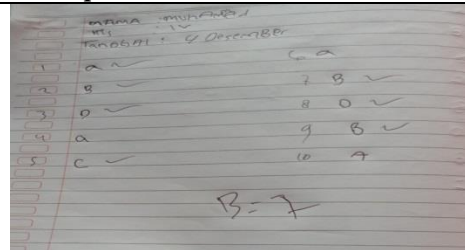 nama : muhammad
Tanggal : 4 Desember
1 a
2 B
3 D
4 a
5 C
6 a
7 B
8 D
9 B
10 A
B = 7